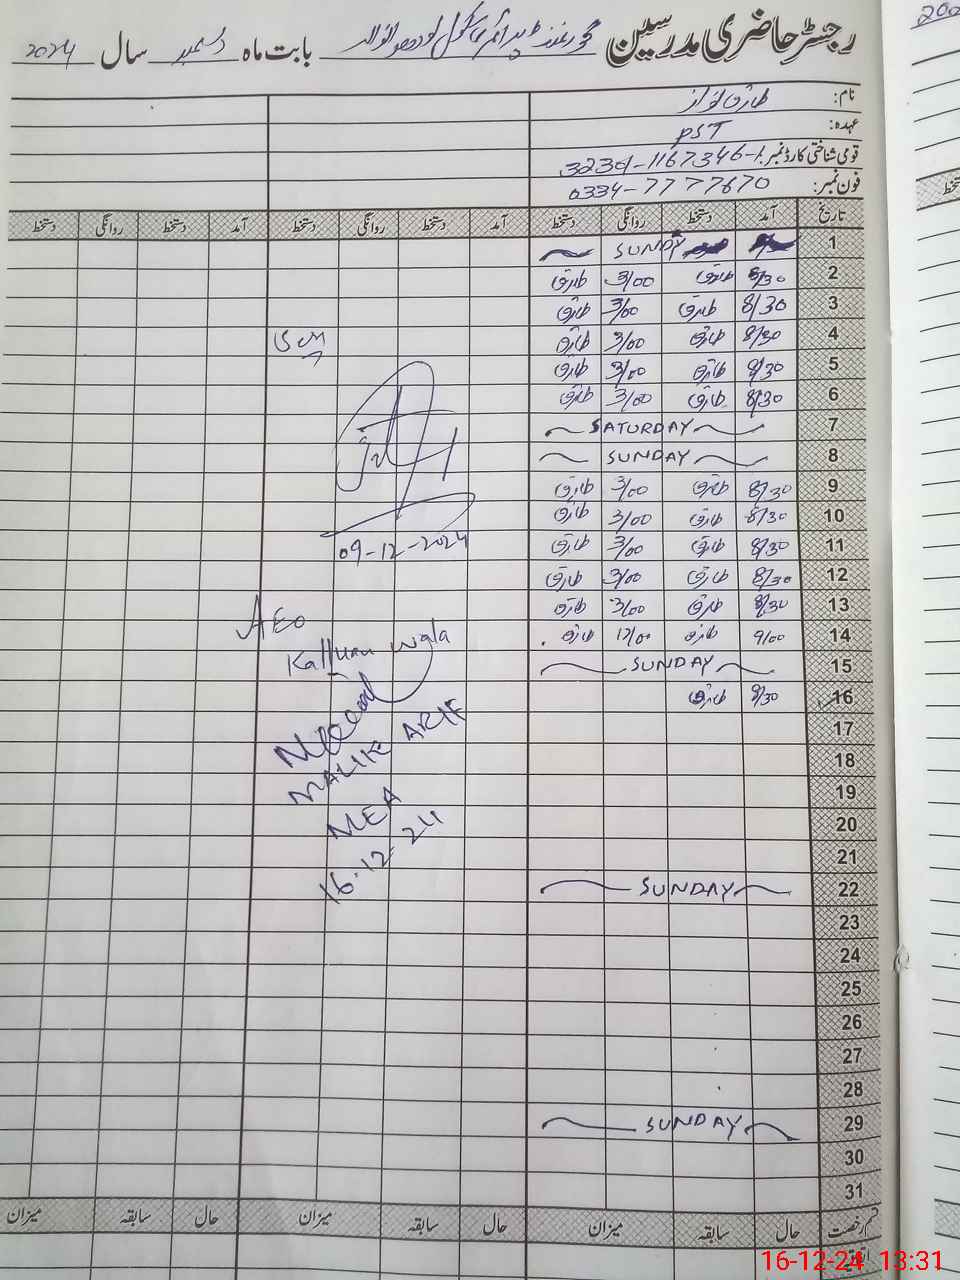 رجسٹر حاضری مدرسین گورنمنٹ پرائمری سکول بابت ماہ دسمبر سال 2024
نام: طارق نواز
عہدہ: PST
قومی شناختی کارڈ نمبر:
فون نمبر: 0334-7777670
تاریخ آمد دستخط روانگی دستخط آمد دستخط روانگی دستخط آمد دستخط روانگی دستخط
1 SUNDAY
2 8/30 طارق 3/00 طارق
3 8/30 طارق 3/00 طارق
4 8/30 طارق 3/00 طارق
5 8/30 طارق 3/00 طارق
6 8/30 طارق 3/00 طارق
7 SATURDAY
8 SUNDAY
9 8/30 طارق 3/00 طارق
10 8/30 طارق 3/00 طارق
11 8/30 طارق 3/00 طارق
12 8/30 طارق 3/00 طارق
13 8/30 طارق 3/00 طارق
14 9/00 طارق 12/00 طارق
15 SUNDAY
16 8/30 طارق
17
18
19
20
21
22 SUNDAY
23
24
25
26
27
28
29 SUNDAY
30
31
قسم رخصت حال سابقہ میزان حال سابقہ میزان حال سابقہ میزان
09-12-2024
AEO
MALIK ARIF
MEA
16-12-24
16-12-24 13:31